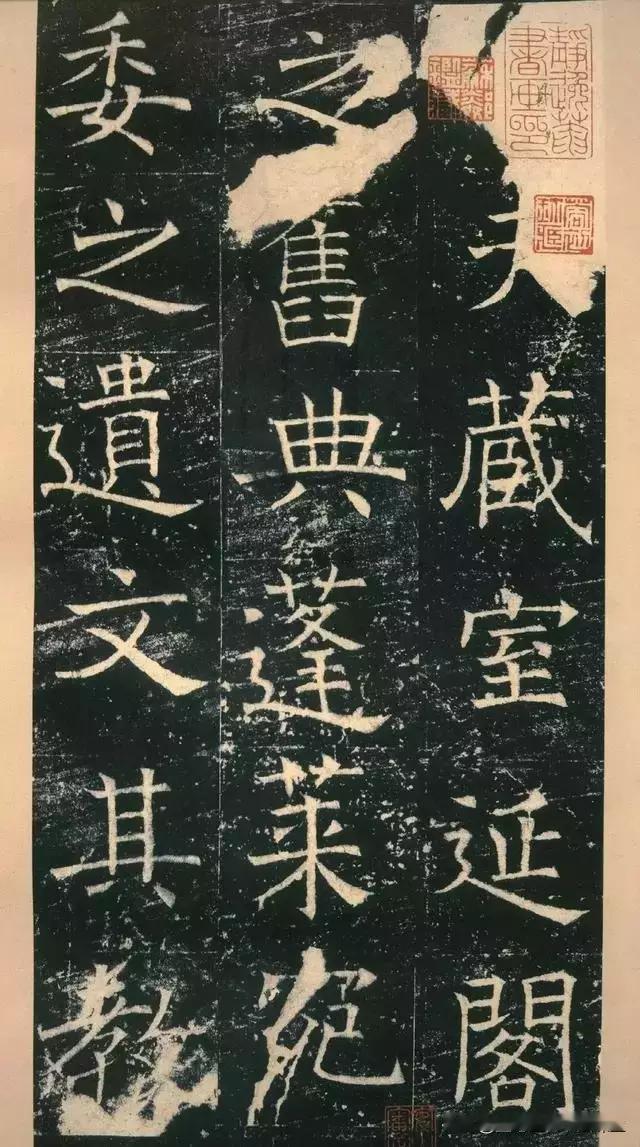 夫藏室延閣
之舊典蓬萊宛
委之遺文其教